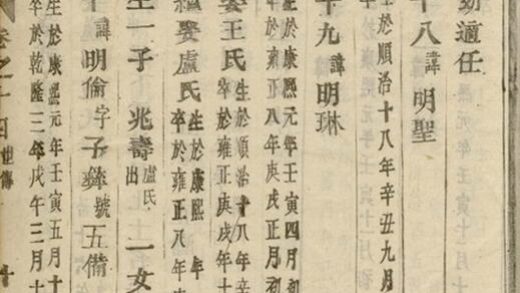 勤適任
十八 諱 明聖
於順治十八年辛丑九月
十九 諱 明琳
於康熙元年壬寅四月初
於雍正八年庚戌正月初
娶王氏
生於順治十八年辛
卒於雍正庚戌年十
繼娶盧氏
生於康熙 年
卒於雍正八年
生一子 兆壽
盧氏
出
一女
諱明倫字子彝號五備
生於康熙元年壬寅五月十
卒於乾隆三年戊午三月十
卷之 世傳 十